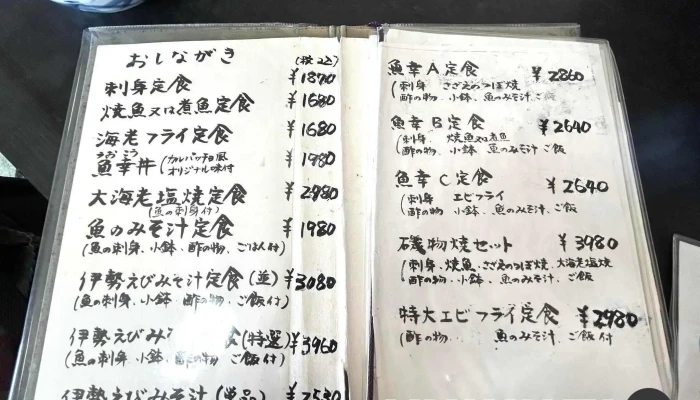 おしながき (税込)
刺身定食 ¥1870
焼魚又は煮魚定食 ¥1680
海老フライ定食 ¥1680
うおこう
魚幸丼 (カルパッチョ風 オリジナル味付 ¥1980
大海老塩焼定食 ¥2980
(魚の刺身付)
魚のみそ汁定食 ¥1980
(魚の刺身、小鉢、酢の物、ごはん付)
伊勢えびみそ汁定食(並) ¥3080
(魚の刺身、小鉢 酢の物、ご飯付)
伊勢えびみ 食(特選) ¥3960
(魚の刺身、小鉢 酢の物 ご飯付)
伊勢えびみそ汁(単品) ¥2530
魚幸A定食 ¥2860
(刺身 さざえのつぼ焼
酢の物、小鉢、魚のみそ汁 ご飯
魚幸B定食 ¥2640
(刺身 焼魚又は煮魚
酢の物、小鉢 魚のみそ汁 ご飯
魚幸C定食 ¥2640
(刺身 エビフライ
酢の物 小鉢、魚のみそ汁、ご飯
磯物焼セット ¥3980
(刺身、焼魚、さざえのつぼ焼、大海老塩焼
酢の物、小鉢、魚のみそ汁、ご飯
特大エビフライ定食 ¥2980
(酢の物 魚のみそ汁 ご飯付